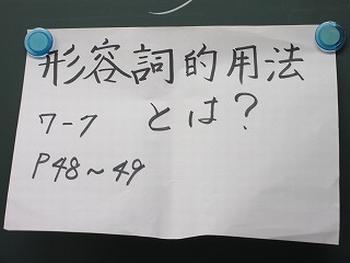 形容詞的用法
とは？
7-7
P48～49